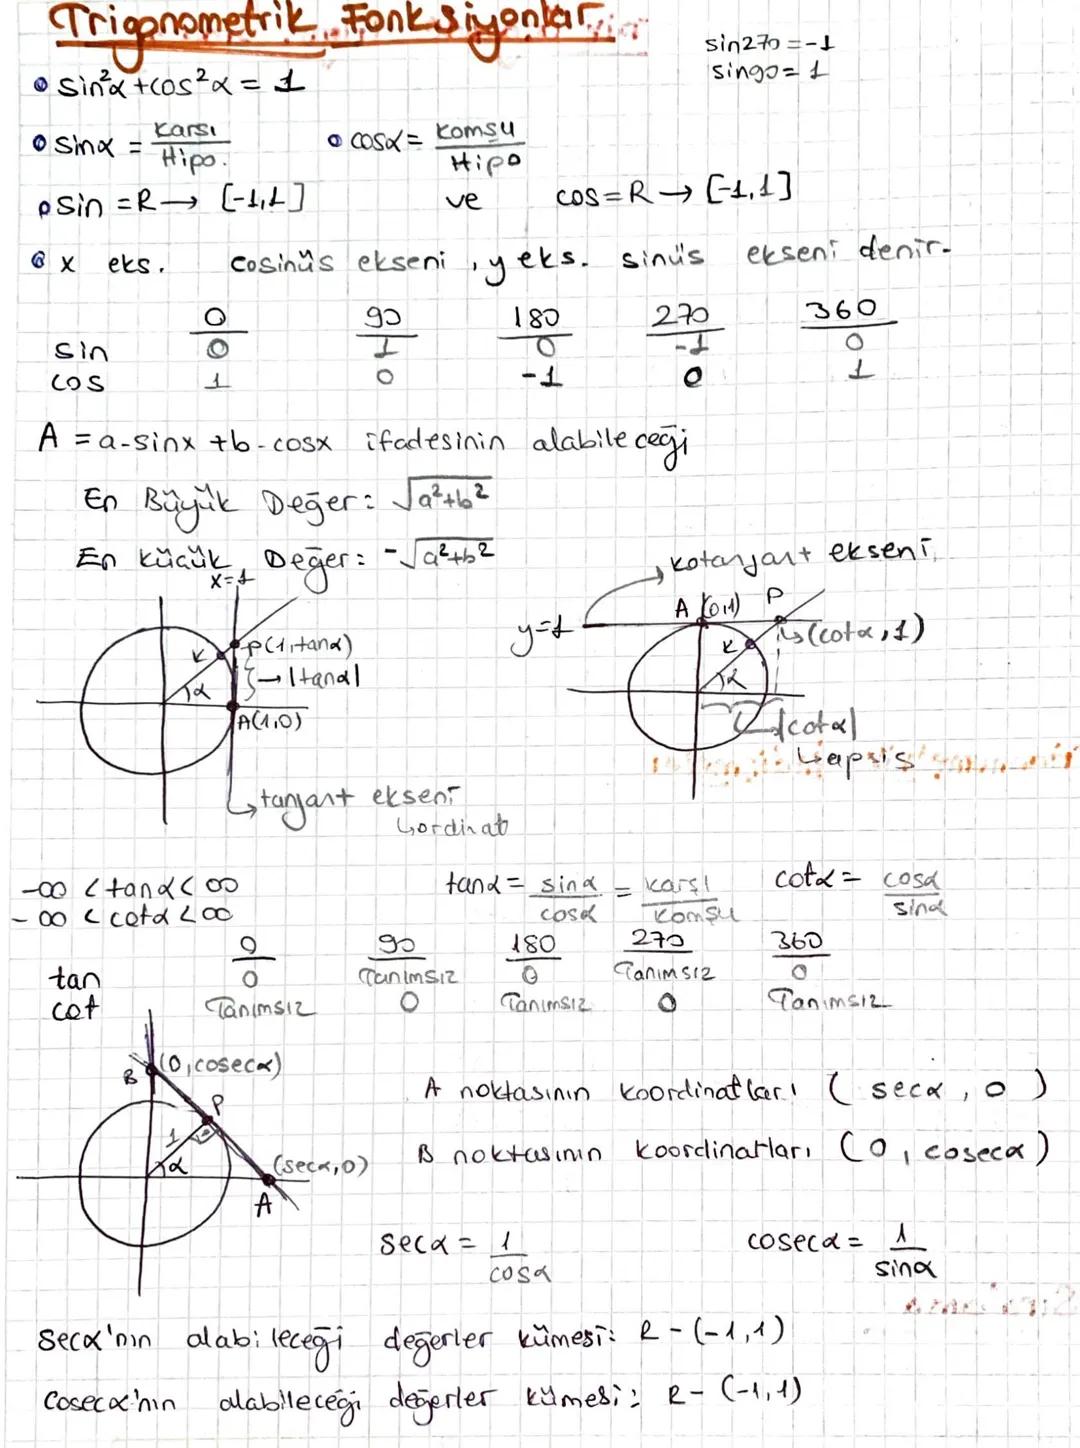 Trigonometrik Fonksiyonlar
sin270 = -1
sin90 = 1
sin²α + cos²α = 1
sinα = Karşı / Hipo.
cosα = Komşu / Hipo
sin = R → [-1,1] ve cos = R → [-1,1]
x eks. cosinüs ekseni, y eks. sinüs ekseni denir.
0 90 180 270 360
sin 0 1 0 -1 0
cos 1 0 -1 0 1
A = a.sinx + b.cosx ifadesinin alabileceği
En Büyük Değer: √a²+b²
En küçük Değer: -√a²+b²
x=1
K P(1,tanα)
α |tanα|
A(1,0)
tanjant ekseni
ordinat
kotanjant ekseni
y=1 A (0,1) P
(cotα, 1)
K
α
|cotα|
apsis
-∞ < tanα < ∞
-∞ < cotα < ∞
tanα = sinα / cosα = karşı / komşu
cotα = cosα / sinα
0 90 180 270 360
tan 0 Tanımsız 0 Tanımsız 0
cot Tanımsız 0 Tanımsız 0 Tanımsız
B (0,cosecα)
P
1
α (secα,0)
A
A noktasının koordinatları (secα, 0)
B noktasının koordinatları (0, cosecα)
secα = 1 / cosα
cosecα = 1 / sinα
secα'nın alabileceği değerler kümesi: R - (-1,1)
cosecα'nın alabileceği değerler kümesi: R - (-1,1)